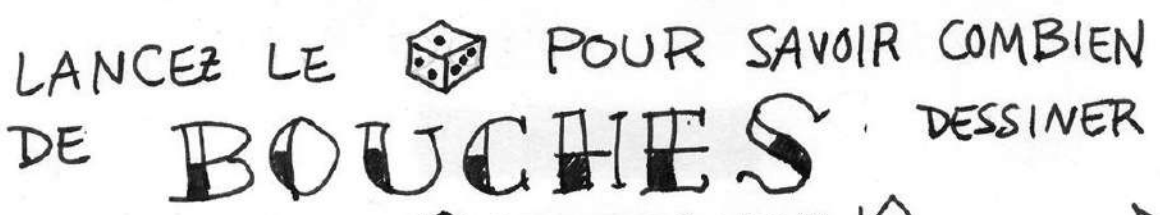 LANCEZ LE POUR SAVOIR COMBIEN
DE BOUCHES DESSINER